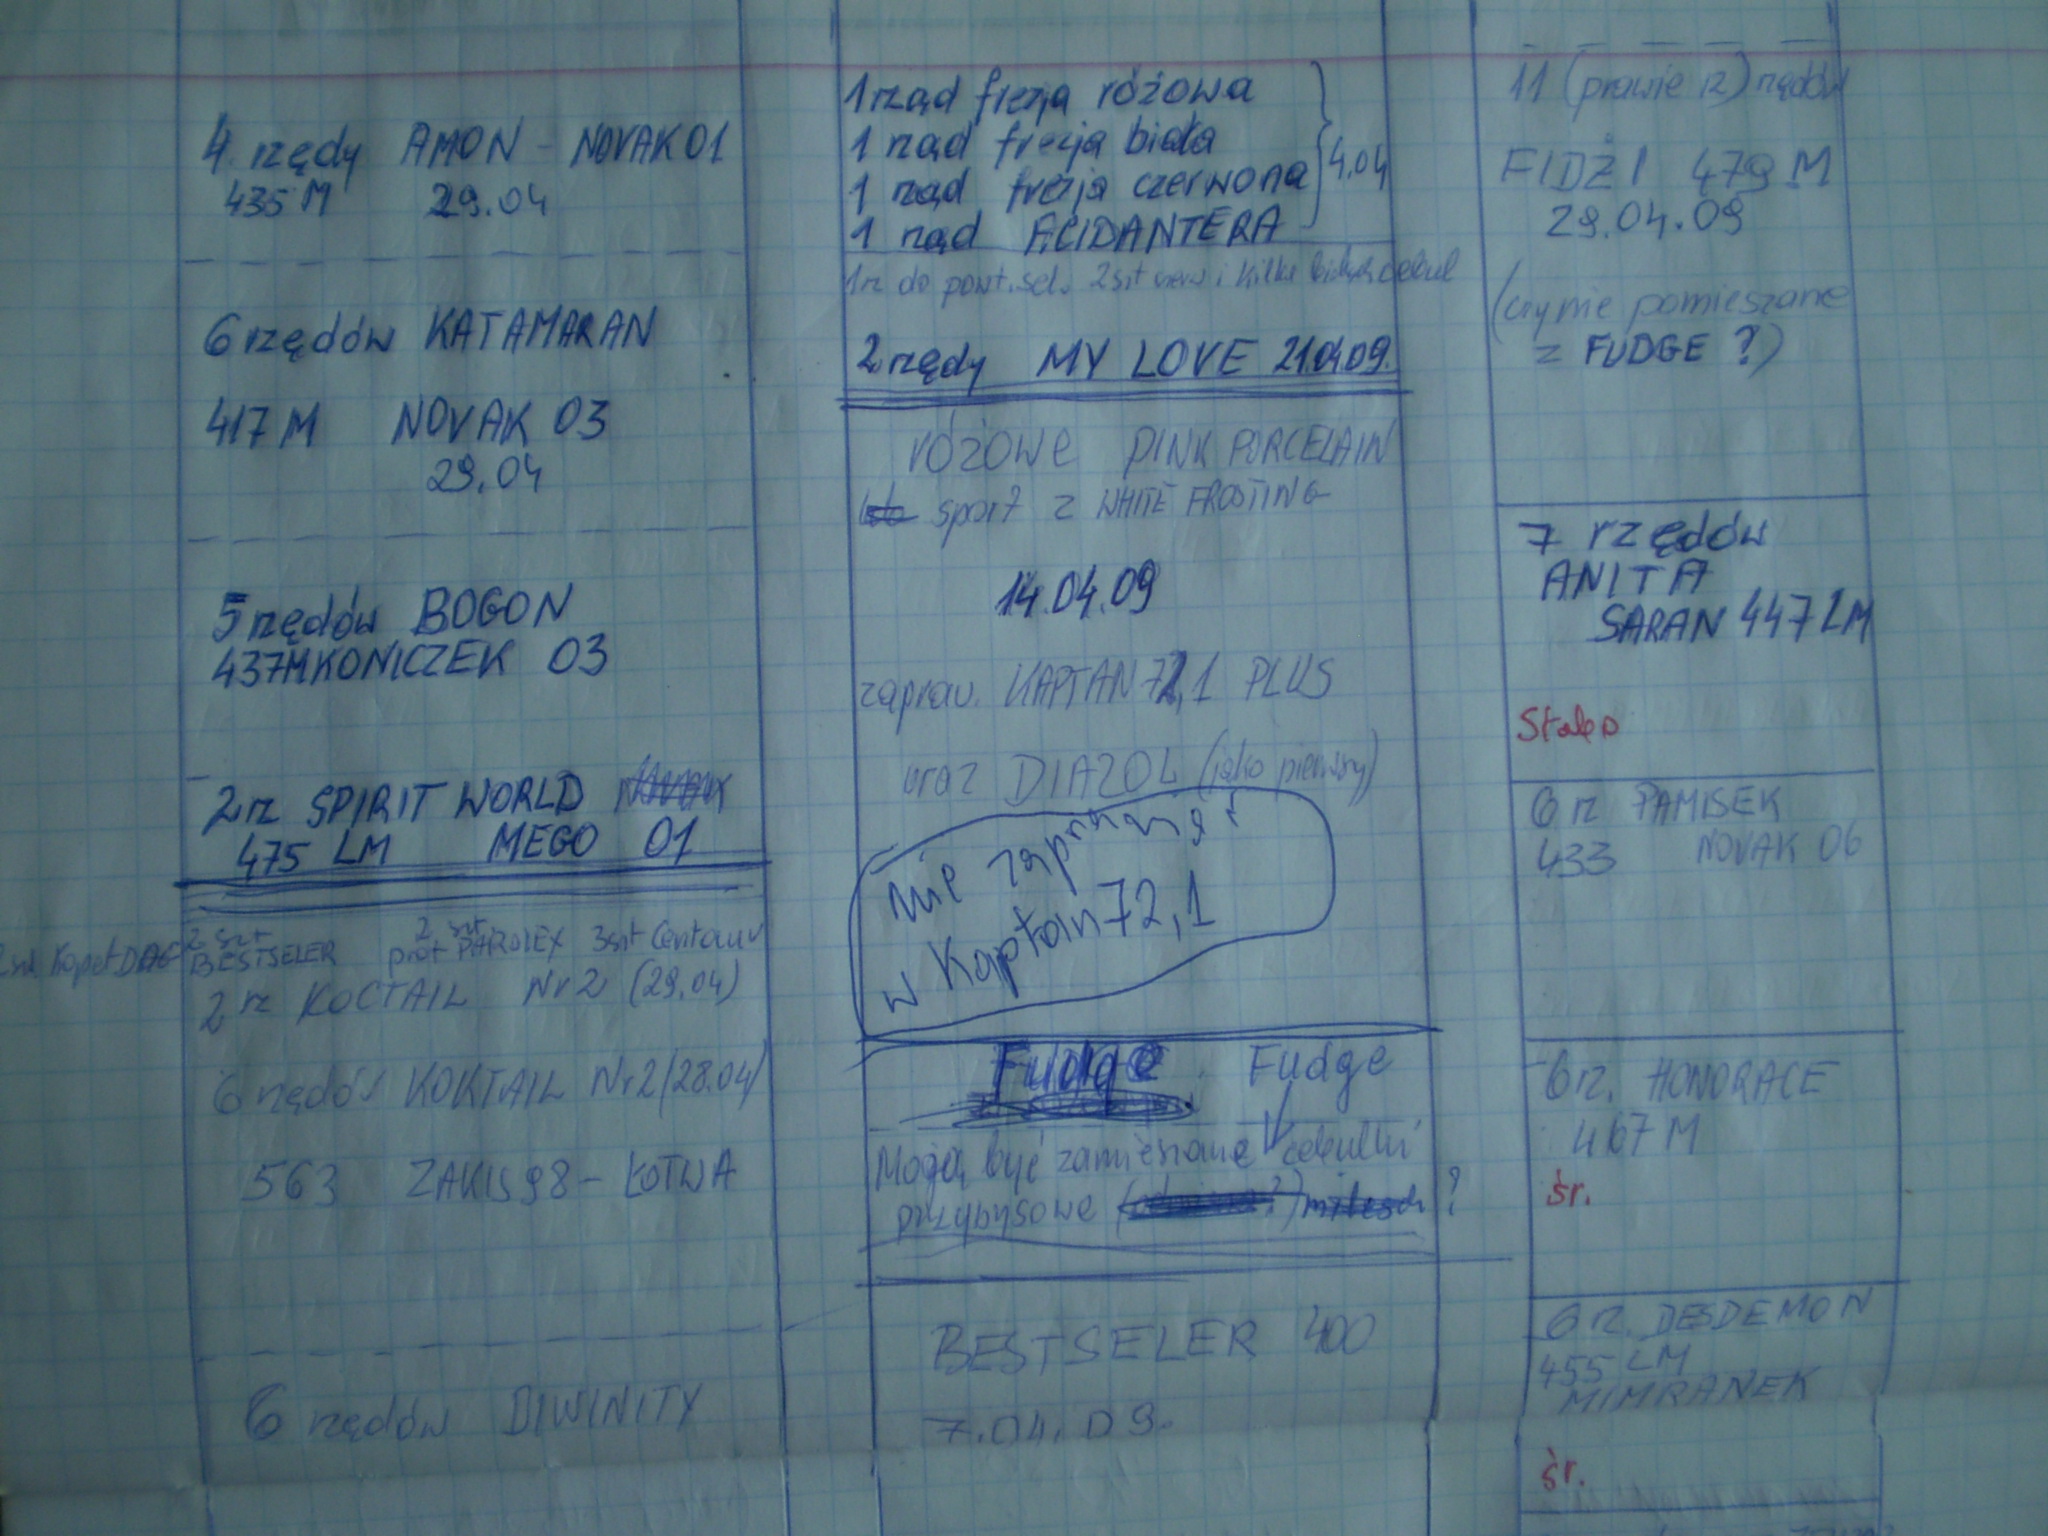 4 rzędy AMON - NOVAK 01
435 M 29.04
6 rzędów KATAMARAN
417 M NOVAK 03
29.04
5 rzędów BOGON
437M KONICZEK 03
2 rz SPIRIT WORLD
475 LM MEGO 01
2 szt 2 szt
BESTSELER PAROLEX 3szt Centaur
2 rz KOCTAIL Nr 2 (29.04)
6 rzędów KOKTAIL Nr 2 (28.04)
563 ZAKIS 98 - ŁOTWA
6 rzędów DIWINITY
1 rząd frezja różowa
1 rząd frezja biała
1 rząd frezja czerwona
4.04
1 rząd ACIDANTERA
1 rz do powt. sel. 2szt i kilka cebul
2 rzędy MY LOVE 21.04.09.
różowe PINK PORCELAIN
sport z WHITE FROSTING
14.04.09
zapraw. KAPTAN 72,1 PLUS
oraz DIAZOL (jako pierwszy)
nie zaprawiać
w Kaptan 72,1
Fudge Fudge
Mogą być zamieszane cebulki
przybyszowe ?
BESTSELER 400
7.04.09.
11 (prawie 12) rzędów
FIDŻI 479 M
29.04.09
(czy nie pomieszane
z FUDGE ?)
7 rzędów
ANITA
SARAN 447 LM
6 rz PAMISEK
433 NOVAK 06
6 rz. HONORACE
467 M
śr.
6 rz. DESDEMON
455 LM
MIMRANEK
śr.